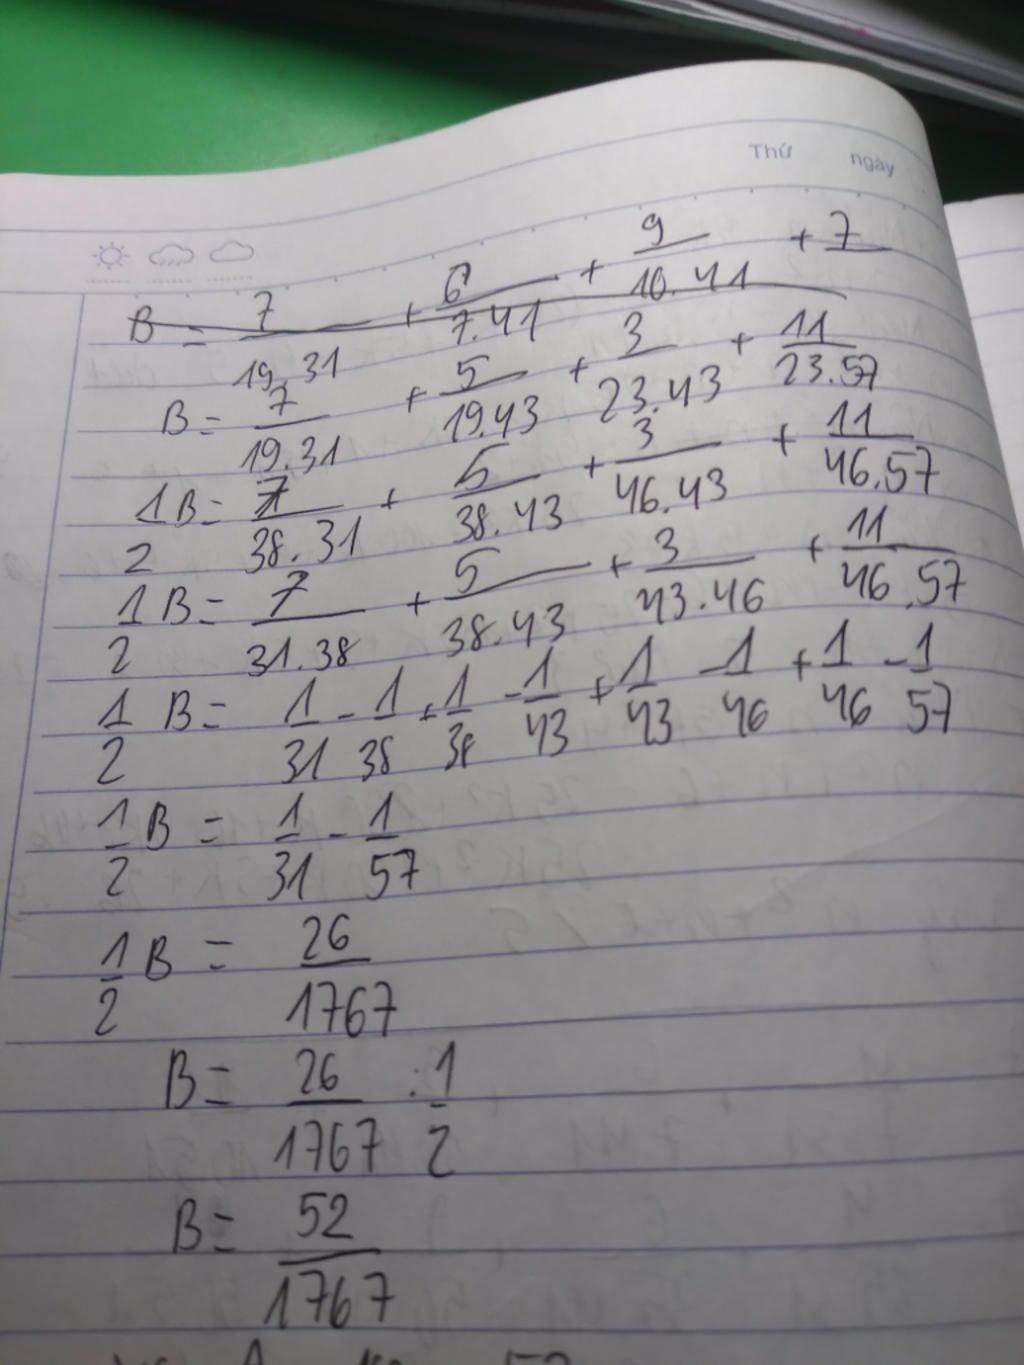 Thứ ngày
B = 7/19.31 + 6/7.41 + 9/10.41 + 7
B = 7/19.31 + 5/19.43 + 3/23.43 + 11/23.57
1/2 B = 7/38.31 + 5/38.43 + 3/46.43 + 11/46.57
1/2 B = 7/31.38 + 5/38.43 + 3/43.46 + 11/46.57
1/2 B = 1/31 - 1/38 + 1/38 - 1/43 + 1/43 - 1/46 + 1/46 - 1/57
1/2 B = 1/31 - 1/57
1/2 B = 26/1767
B = 26/1767 : 1/2
B = 52/1767